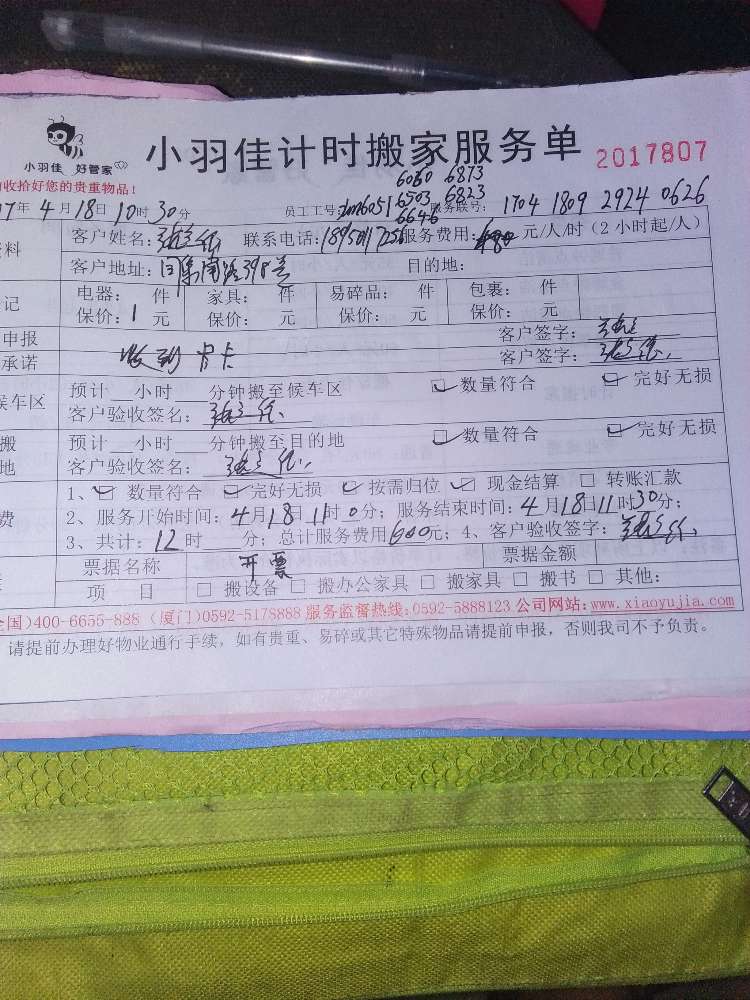 小羽佳 好管家
小羽佳计时搬家服务单
2017807
收拾好您的贵重物品!
6060 6873
6503 6823
6646
7年4月18日10时30分
员工工号: 6051
服务联号: 1704 1809 2924 0626
客户姓名:
联系电话:
服务费用: 元/人/时(2小时起/人)
资料
客户地址: 398号
目的地:
电器: 件
家具: 件
易碎品: 件
包裹: 件
记
保价:1元
保价: 元
保价: 元
保价: 元
申报
客户签字:
承诺
收到 卡卡
客户签字:
候车区
预计__小时___分钟搬至候车区
数量符合
完好无损
客户验收签名:
搬
预计__小时___分钟搬至目的地
数量符合
完好无损
地
客户验收签名:
1、 数量符合 完好无损 按需归位 现金结算 转账汇款
费
2、服务开始时间:4月18日11时0分;服务结束时间:4月18日11时30分;
3、共计:12时 分;总计服务费用600元;4、客户验收签字:
票据名称
开票
票据金额
项 目
搬设备 搬办公家具 搬家具 搬书 其他:
全国)400-6655-888(厦门)0592-5178888 服务监督热线:0592-5888123 公司网站:www.xiaoyujia.com
请提前办理好物业通行手续,如有贵重、易碎或其它特殊物品请提前申报,否则我司不予负责。